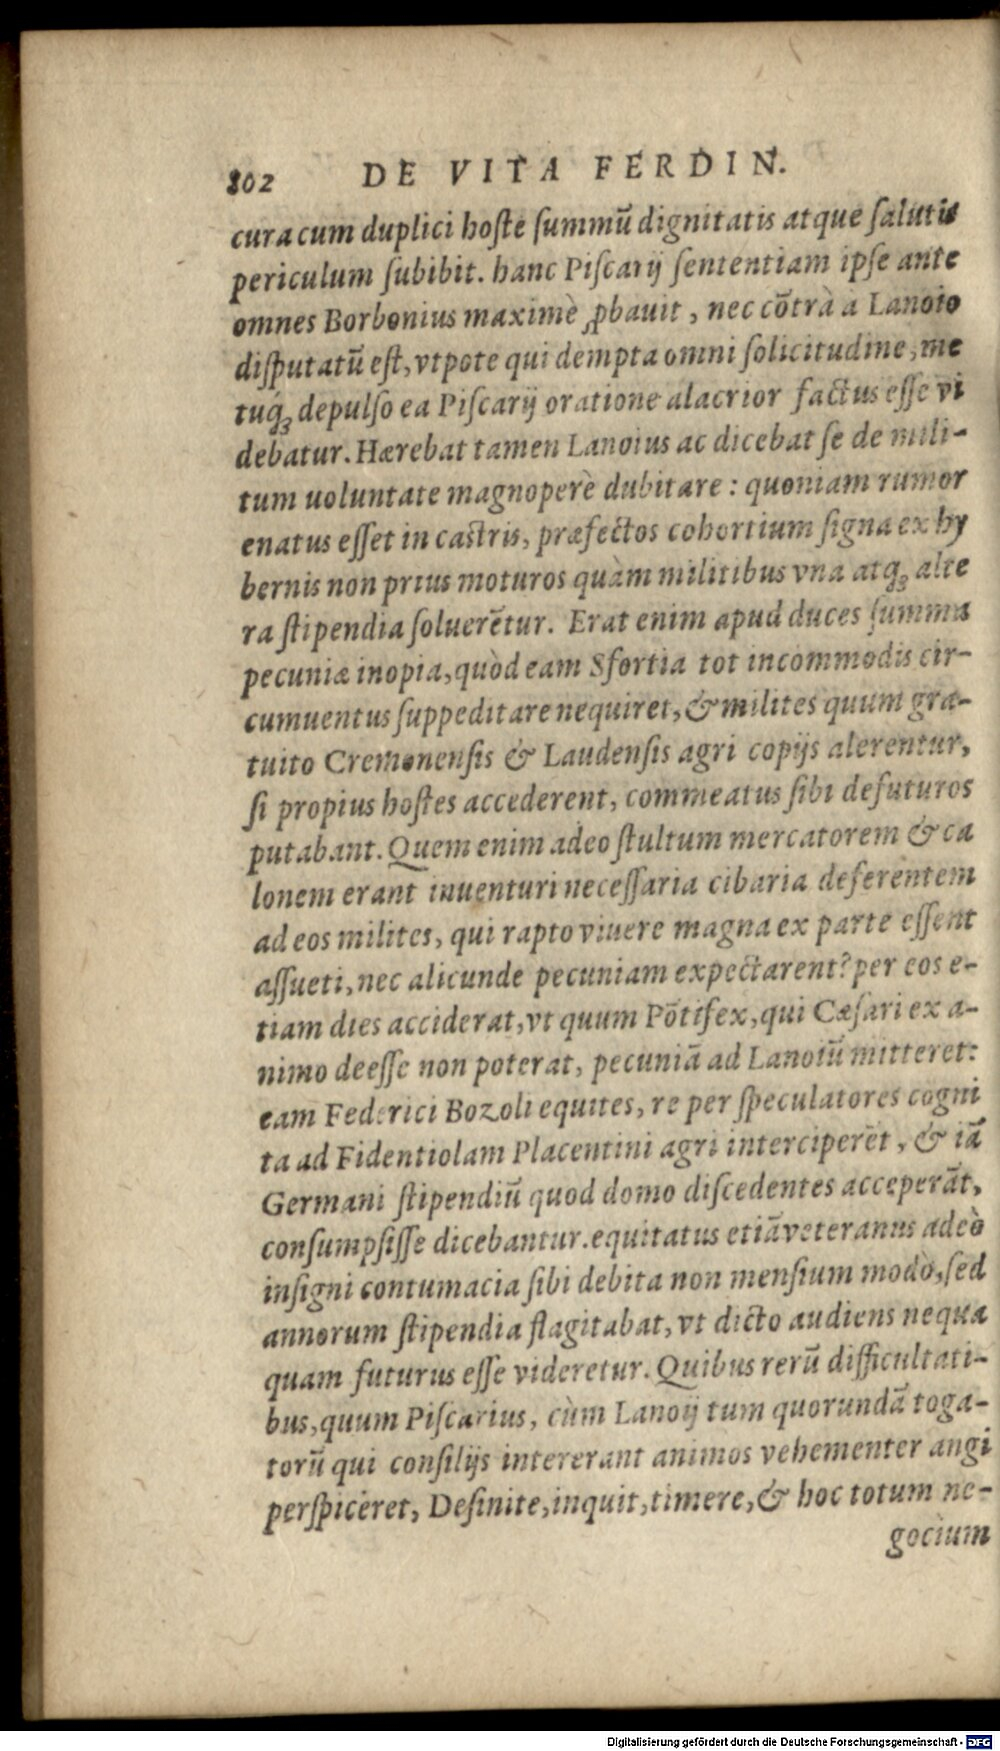 202 DE VITA FERDIN.
cura cum duplici hoſte ſummū dignitatis atque ſalutis
periculum ſubibit. hanc Piſcarij ſententiam ipſe ante
omnes Borbonius maximè ꝓbauit, nec cōtrà à Lanoio
diſputatū eſt, vtpote qui dempta omni ſolicitudine, me
tuq́ꝫ depulſo ea Piſcarij oratione alacrior factus eſſe vi
debatur. Hærebat tamen Lanoius ac dicebat ſe de mili-
tum uoluntate magnoperè dubitare: quoniam rumor
enatus eſſet in caſtris, præfectos cohortium ſigna ex hy
bernis non prius moturos quàm militibus vna atqꝫ alte
ra ſtipendia ſoluerētur. Erat enim apud duces ſumma
pecuniæ inopia, quòd eam Sfortia tot incommodis cir-
cumuentus ſuppeditare nequiret, & milites quum gra-
tuito Cremonenſis & Laudenſis agri copijs alerentur,
ſi propius hoſtes accederent, commeatus ſibi defuturos
putabant. Quem enim adeo ſtultum mercatorem & ca
lonem erant inuenturi neceſſaria cibaria deferentem
ad eos milites, qui rapto viuere magna ex parte eſſent
aſſueti, nec alicunde pecuniam expectarent? per eos e-
tiam dies acciderat, vt quum Pōtifex, qui Cæſari ex a-
nimo deeſſe non poterat, pecuniā ad Lanoiū mitteret:
eam Federici Bozoli equites, re per ſpeculatores cogni
ta ad Fidentiolam Placentini agri interciperēt, & iā
Germani ſtipendiū quod domo diſcedentes acceperāt,
conſumpſiſſe dicebantur. equitatus etiā veteranus adeò
inſigni contumacia ſibi debita non menſium modò, ſed
annorum ſtipendia flagitabat, vt dicto audiens nequa
quam futurus eſſe videretur. Quibus rerū difficultati-
bus, quum Piſcarius, cùm Lanoij tum quorundā toga-
torū qui conſilijs intererant animos vehementer angi
perſpiceret, Deſinite, inquit, timere, & hoc totum ne-
gocium
Digitalisierung gefördert durch die Deutsche Forschungsgemeinschaft - DFG